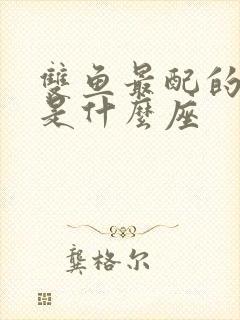 雙鱼最配的
是什麼座
龔格尔